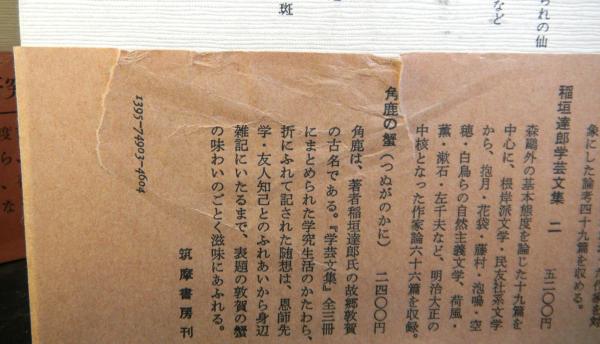 られの仙
など
斑
象にした論考四十九篇を収める。
稲垣達郎学芸文集　二　五二〇〇円
森鷗外の基本態度を論じた十九篇を
中心に、根岸派文学・民友社系文学
から、抱月・花袋・藤村・泡鳴・空
穂・白鳥らの自然主義文学、荷風・
薫・漱石・左千夫など、明治大正の
中核となった作家論六十六篇を収録。
角鹿の蟹（つぬがのかに）　二四〇〇円
角鹿は、著者稲垣達郎氏の故郷敦賀
の古名である。『学芸文集』全三冊
にまとめられた学究生活のかたわら、
折にふれて記された随想は、恩師先
学・友人知己とのふれあいから身辺
雑記にいたるまで、表題の敦賀の蟹
の味わいのごとく滋味にあふれる。
筑摩書房刊
1395-74903-4604